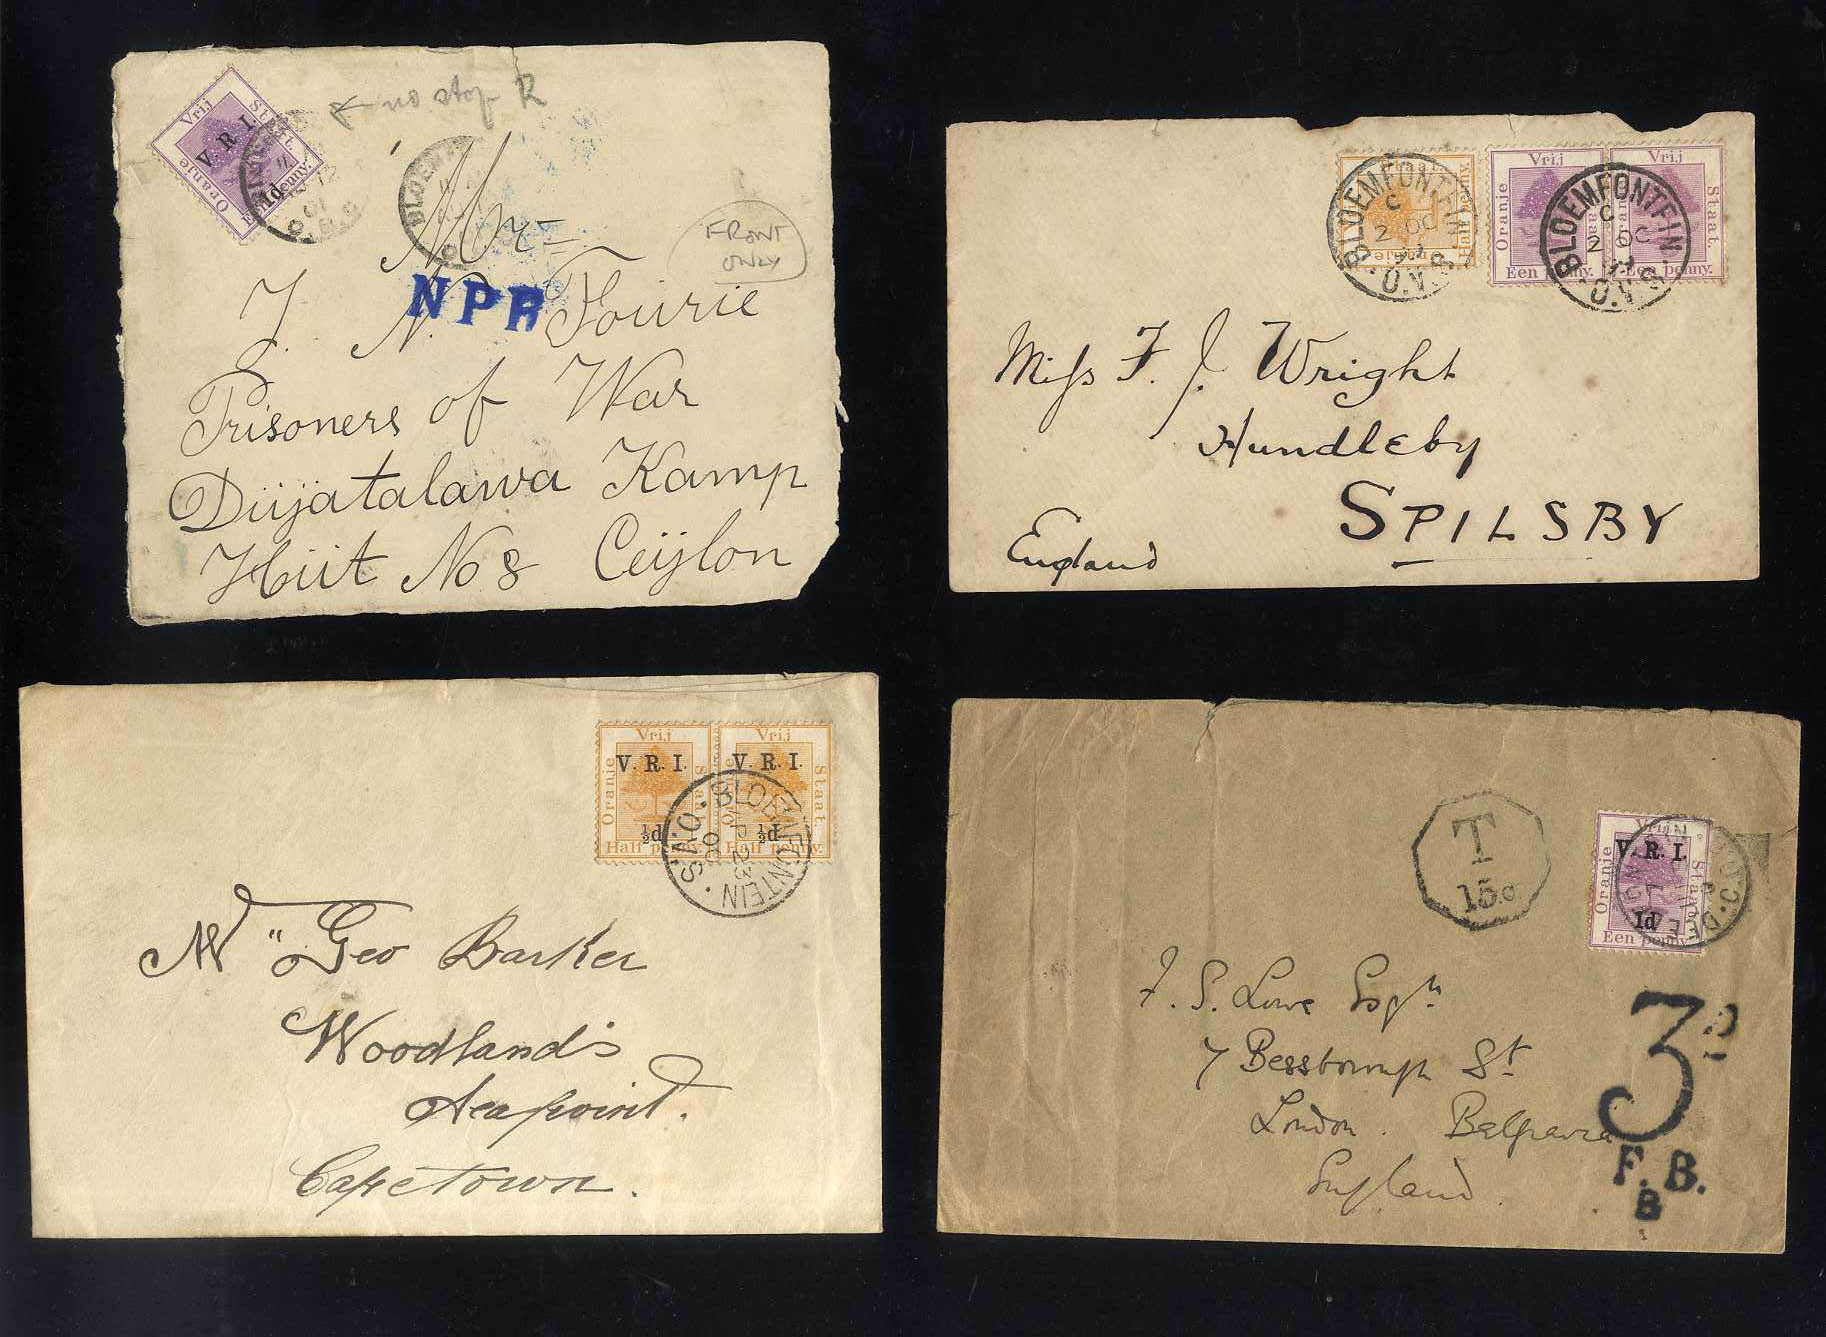 ← no stop R
Vrij
Staat.
Oranje
V. R I.
1d
Een penny.
BLOEMF
FRONT
ONLY
Mr
NPB
J. N. Fourie
Prisoners of War
Diijatalawa Kamp
Hiit No 8 Ceijlon
Vrij Vrij
Oranje Staat.
Een penny. Een penny.
BLOEMFONTEIN
C
2 OC
O.V.S.
BLOEMFONTEIN
C
2 OC
O.V.S.
Miss F. J. Wright
Hundleby
SPILSBY
England
Vrij Vrij
V. R. I. V. R. I.
Oranje Staat.
½d ½d
Half penny. Half penny.
BLOEMFONTEIN
23
00
O.V.S.
Mr Geo Barker
Woodlands
Seapoint.
Capetown.
T
15.c
Vrij
V. R. I.
Oranje Staat.
1d
Een penny.
F. S. Lowe Esqre
7 Bessborough St
London. Belgravia
England.
3D
F.B.
8